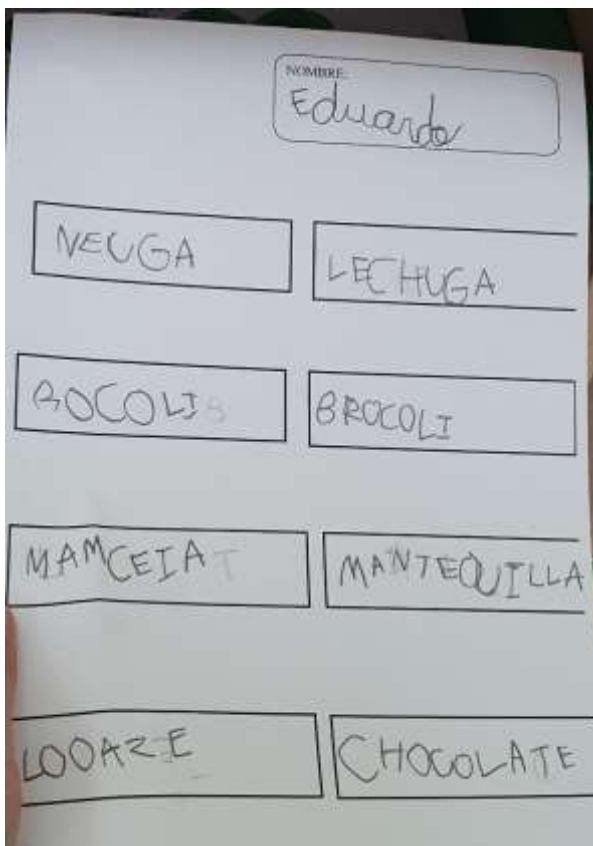 NOMBRE:
Eduardo
NEUGA LECHUGA
BOCOLI BROCOLI
MAMCEIA MANTEQUILLA
LOOAZE CHOCOLATE